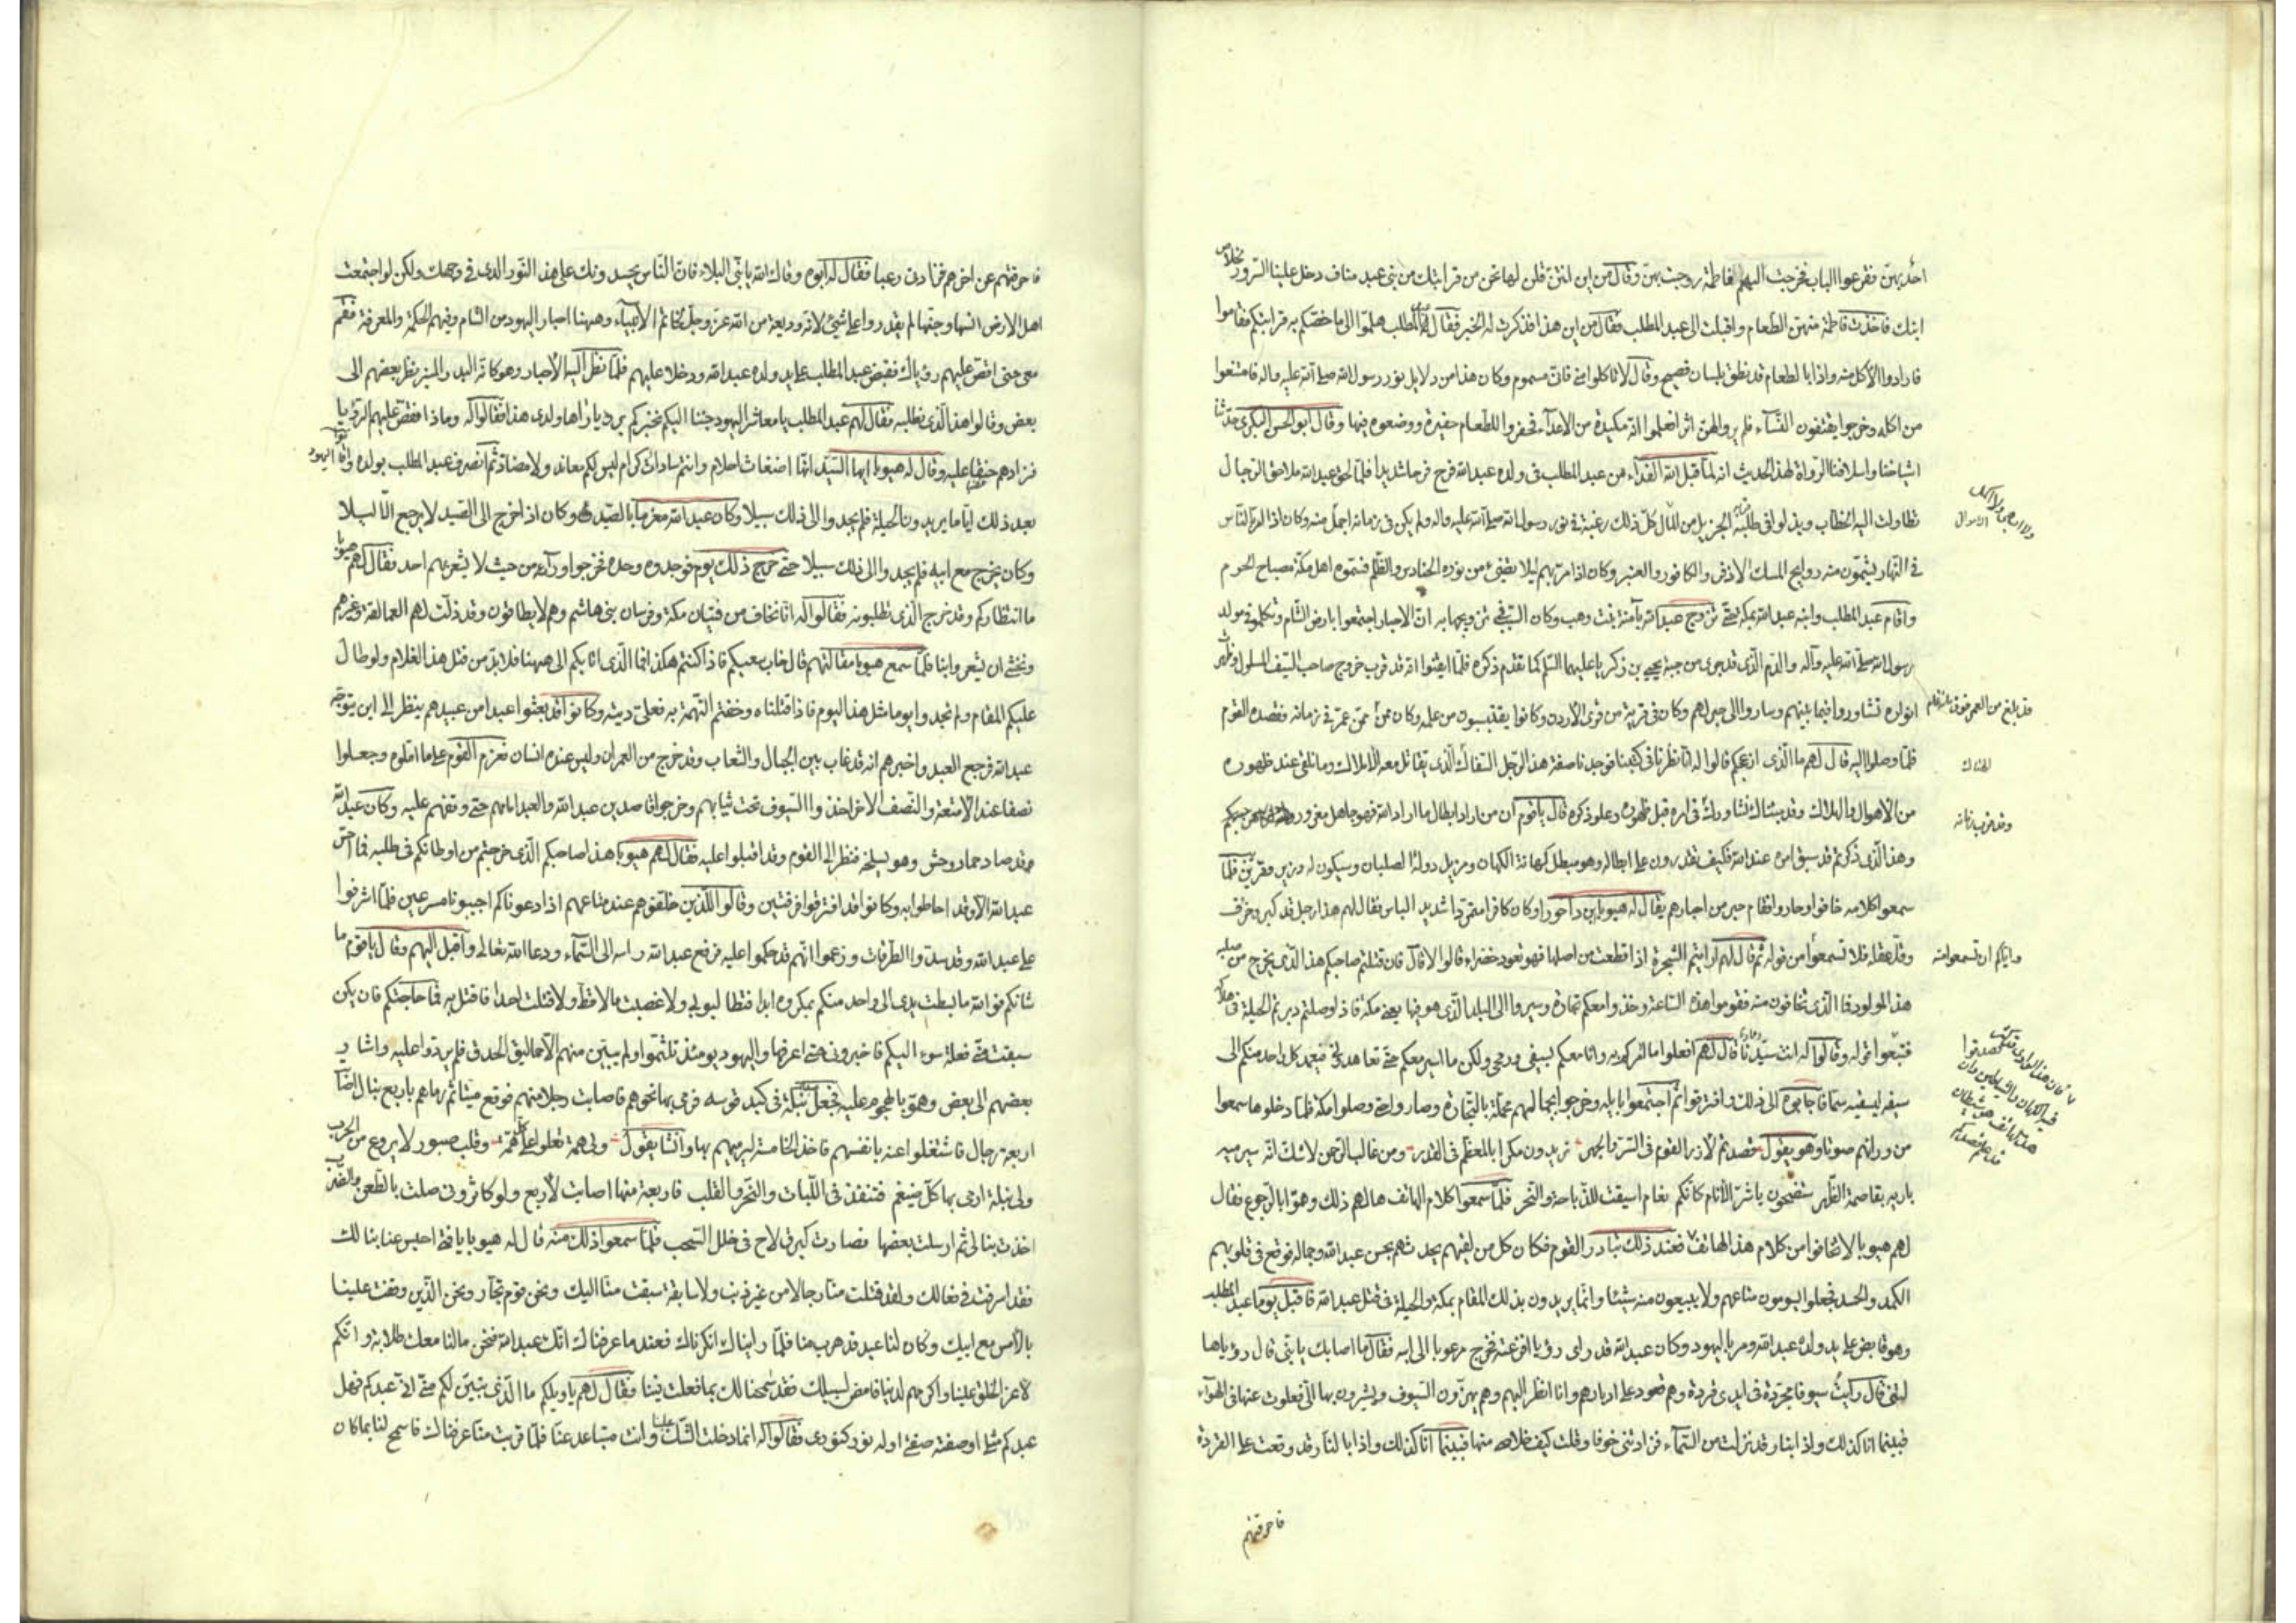 احد بهن فقرعوا الباب فخرجت اليهم فاطمة زوجت بهن وقال من اين انتن قلن لها نحن من قرابتك من بنى عبد مناف دخل علينا السرور
ابنك فاخذت فاطمة منهن الطعام واقبلت الى عبد المطلب فقال من اين هذا فذكرت له الخبر فقال عبد المطلب هلموا الى ما خصكم به قرابتكم فقاموا
فارادوا الأكل منه واذا بالطعام قد نطق بلسان فصيح وقال لا تاكلوا منى فانى مسموم وكان هذا من دلايل نور رسول الله صلى الله عليه واله فامتنعوا
من اكله وخرجوا يقتفون النساء فلم يروا لهن اثرا فعلموا انه مكيدة من الاعداء فحفروا للطعام حفيرة ووضعوه فيها وقال ابو الحسن البكرى حدثنا
اشياخنا واسلافنا الرواة لهذا الحديث انه لما قبل الله الفداء من عبد المطلب فى ولده عبد الله فرح فرحا شديدا فلما لحق عبد الله ملاحق الرجال
تطاولت اليه الخطاب وبذلوا فى طلبه الجزيل من المال كل ذلك رغبة فى نور رسول الله صلى الله عليه واله ولم يكن فى زمانه اجمل منه وكان اذا مر بالناس
فى النهار يشمون منه روايح المسك الاذفر والكافور والعنبر وكان اذا مر بهم ليلا يضيئ من نوره الحنادس والظلم فسموه اهل مكة مصباح الحرم
واقام عبد المطلب وابنه عبد الله بمكة حتى تزوج عبد الله بآمنة بنت وهب وكان السبب فى تزويجها به ان الاحبار اجتمعوا بارض الشام وتكلموا فى مولد
رسول الله صلى الله عليه وآله والدم الذى قد جرى من جبة يحيى بن زكريا عليهما السلم كما تقدم ذكره فلما ايقنوا انه قد قرب خروج صاحب السيف المسلول وظهرت
انواره تشاوروا فيما بينهم وساروا الى حبر لهم وكان فى قرية من قرى الأردن وكانوا يقتبسون من علمه وكان ممن عمر فى زمانه فقصده القوم
فلما وصلوا اليه قال لهم ما الذى ازعجكم قالوا له انا نظرنا فى كتبنا فوجدنا صفة هذا الرجل السفاك الذى يقاتل معه الأملاك وما نلقى عند ظهوره
من الأهوال والهلاك وقد جئناك نشاورك فى امره قبل ظهوره وعلو ذكره قال يا قوم ان من اراد ابطال ما اراد الله فهو جاهل مغرور
وهذا الذى ذكرتم قد سبق امره عند الله فكيف تقدرون على ابطاله وهو مبطل كهانة الكهان ومزيل دولة الصلبان وسيكون له وزير وقريب فلما
سمعوا كلامه خافوا وحاروا فقام حبر من احبارهم يقال له هيوبا بن داحورا وكان كافرا متمردا شديد الباس فقال لهم هذا رجل قد كبر وخرف
وقل عقله فلا تسمعوا من قوله ثم قال لهم ارايتم الشجرة اذا قطعت من اصلها فهو تعود خضراء قالوا لا قال فان قتلتم صاحبكم هذا الذى يخرج من صلبه
هذا المولود فما الذى تخافون منه فقوموا هذه الساعة وخذوا معكم تجارة وسيروا الى البلد الذى هو فيها يعنى مكة فاذا وصلتم دبرتم الحيلة فى هلاكه
فتبعوا قوله وقالوا له انت سيدنا قال لهم افعلوا ما امركم به وانا معكم بسيفى ورمحى ولكن ما اسير معكم حتى تعاهدونى فيعمد كل واحد منكم الى
سيفه ليسقيه سما فاجابوه الى ذلك وافترقوا ثم اجتمعوا بابله وخرجوا بجمالهم محملة بالتجارة وصاروا حتى وصلوا مكة فلما دخلوها سمعوا
من ورائهم صوتا وهو يقول قصدتم لأذر القوم فى السر والجهر تريدون مكرا بالمعظم فى القدر ومن غالب الرحمن لا شك انه سيرميه
باريه بقاصمة الظهر ستضحون يا شر الأنام كانكم نعام اسيقت للذباحة والنحر فلما سمعوا كلام الهاتف هالهم ذلك وهموا بالرجوع فقال
لهم هيوبا لا تخافوا من كلام هذا الهاتف فعند ذلك تبادر القوم فكان كل من لقيهم يحدثهم بحسن عبد الله وجماله فوقع فى قلوبهم
الكمد والحسد فجعلوا يسومون متاعهم ولا يبيعون منه شيئا وانما يريدون بذلك المقام بمكة والحيلة فى قتل عبد الله فاقبل يوما عبد المطلب
وهو قابض على يد ولده عبد الله ومر باليهود وكان عبد الله قد راى رؤيا افزعته فخرج مرعوبا الى ابيه فقال ما اصابك يا بنى قال رؤيا هالتنى
قال رايت سيوفا مجردة فى ايدى قردة وهم قعود على ادبارهم وانا انظر اليهم وهم يهزون السيوف ويشيرون بها الى فعلوت عنها فى الهواء
فبينما انا كذلك واذا بنار قد نزلت من السماء فزادتنى خوفا وقلت كيف خلاصى منها فبينما انا كذلك واذا بالنار قد وقعت على القردة
فاحرقتهم
وقد قرب زمانه
واياكم ان تسمعوا منه
فاحرقتهم عن اخرهم فزادنى رعبا فقال له ابوه وقاك الله يا بنى البلاء فان الناس يحسدونك على هذا النور الذى فى وجهك ولكن لو اجتمعت
اهل الأرض انسها وجنها لم يقدروا على شيئ لانه وديعة من الله عز وجل لخاتم الأنبياء وههنا احبار اليهود من الشام وفيهم الحكمة والمعرفة فقم
معى حتى اقص عليهم رؤياك فقبض عبد المطلب على يد ولده عبد الله ودخلا عليهم فلما نظر اليه الأحبار وهو كانه البدر المنير نظر بعضهم الى
بعض وقالوا هذا الذى نطلبه فقال لهم عبد المطلب يا معاشر اليهود جئنا اليكم نخبركم برؤيا راها ولدى هذا فقالوا له وماذا فقص عليهم الرؤيا
فزادهم حنقا عليه وقال له هيوبا ايها السيد انها اضغاث احلام وانتم سادات كرام ليس لكم معاند ولا مضاد ثم انصرف عبد المطلب بولده واقام اليهود
بعد ذلك اياما يريدون الحيلة فلم يجدوا الى ذلك سبيلا وكان عبد الله مغرما بالصيد وكان اذا خرج الى الصيد لا يرجع الا ليلا
وكان يخرج مع ابيه فلم يجدوا الى ذلك سبيلا حتى خرج ذلك يوم فوجدوه وحده فخرجوا وراءه من حيث لا يشعر بهم احد فقال لهم هيوبا
ما انتظاركم وقد خرج الذى تطلبونه فقالوا له انا نخاف من فتيان مكة وفرسان بنى هاشم وهم لا يطاقون وقد ذلت لهم العمالقة وغيرهم
ونخشى ان يشعروا بنا فلما سمع هيوبا مقالتهم قال خاب سعيكم فاذا كنتم هكذا فما الذى اتا بكم الى ههنا فلا بد من قتل هذا الغلام ولو طال
عليكم المقام ولم تجدوا يوما مثل هذا اليوم فاذا قتلناه وخفتم التهمة به فعلى ديته وكانوا قد بعثوا عبدا من عبيدهم ينظر الى اين يتوجه
عبد الله فرجع العبد واخبرهم انه قد غاب بين الجبال والشعاب وقد خرج من العمران وليس عنده انسان فعزم القوم على ما املوه وجعلوا
نصفا عند الأمتعة والنصف الأخر اخذوا السيوف تحت ثيابهم وخرجوا قاصدين عبد الله والعبد امامهم حتى وقفهم عليه وكان عبد الله
قد صاد حمار وحش وهو يسلخه فنظر الى القوم وقد اقبلوا عليه فقال لهم هيوبا هذا صاحبكم الذى خرجتم من اوطانكم فى طلبه فما احس
عبد الله الا وقد احاطوا به وكانوا قد افترقوا فرقتين وقالوا للذين خلفوهم عند متاعهم اذا دعوناكم اجيبونا مسرعين فلما اشرفوا
على عبد الله وقد سدوا الطرقات وزعموا انهم قد حكموا عليه فرفع عبد الله راسه الى السماء ودعا الله تعالى واقبل اليهم وقال يا قوم ما
شانكم فوالله ما بسطت يدى الى واحد منكم بمكروه ابدا فتطالبونى ولا غصبت مالا قط ولا قتلت احدا فاقتل به فما حاجتكم فان يكن
سبقت منى فعلة سوء اليكم فاخبرونى حتى اعرفها واليهود يومئذ تلثموا ولم يبين منهم الا حماليق الحدق فلم يردوا عليه واشار
بعضهم الى بعض وهموا بالهجوم عليه فجعل نبلة فى كبد قوسه فرمى بها نحوهم فاصابت رجلا منهم فوقع ميتا ثم رماهم باربع نبال اصابت
اربعة رجال فاشتغلوا عنه بانفسهم فاخذ الخامسة ليرميهم بها وانشا يقول ولى همة تعلو على كل همة وقلب صبور لا يروع من الحرب
ولى نبلة ارمى بها كل ضيغم فتنفذ فى اللبات والنحر والقلب فاربعة منها اصابت لأربع ولو كاثرونى صلت بالطعن والضرب
اخذت نبالى ثم ارسلت بعضها فصارت كبرق لاح فى خلل السحب فلما سمعوا ذلك منه قال له هيوبا يا فتى احبس عنا نبالك
فقد اسرفت فى فعالك ولقد قتلت منا رجالا من غير ذنب ولا سابقة سبقت منا اليك ونحن قوم تجار ونحن الذين وقفت علينا
بالأمس مع ابيك وكان لنا عبد قد هرب منا فلما رايناك انكرناك فعند ما عرفناك انك عبد الله فنحن ما لنا معك طلابة وانكم
لأعز الخلق علينا واكرمهم لدينا فامض لسبيلك فقد سمحنا لك بما فعلت فينا فقال لهم يا ويلكم ما الذى تبين لكم منى انى عبدكم فهل
عبدكم مثلى او صفته صفتى او له نور كنورى فقالوا له انما دخلت الشك علينا وانت متباعد عنا فلما قربت منا عرفناك فاسمح لنا بما كان